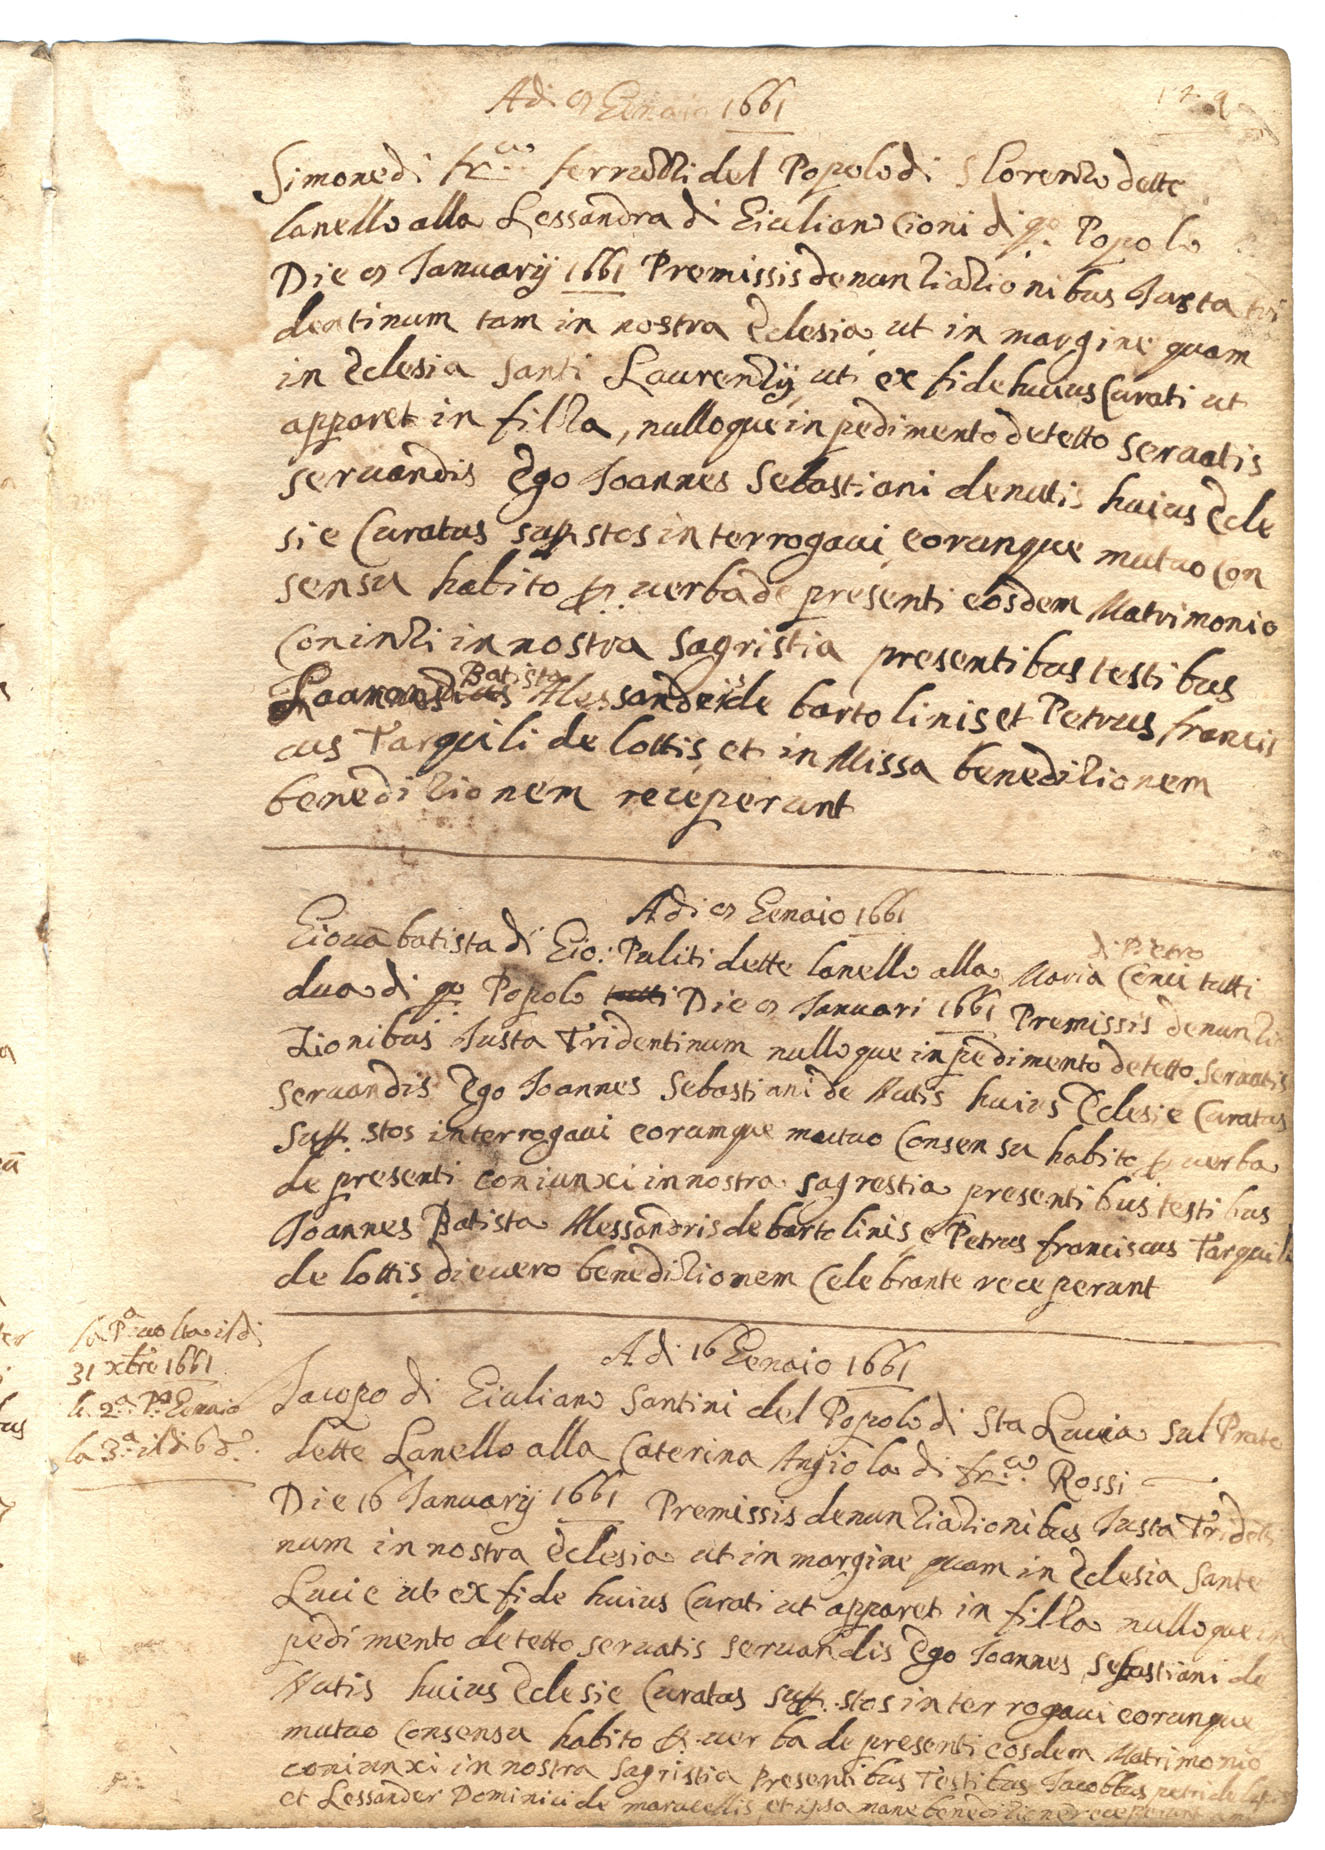 Adi 9 Gennaio 1661
129
Simone di fr.co ferruzzi del Popolo di S Lorenzo dette
lanello alla Lessandra di Giuliano Cioni di q.o Popolo
Die 9 Januarij 1661 Premissis denunziazionibus Iusta tri
dentinum tam in nostra Eclesia ut in margine quam
in Eclesia Santi Laurenzij, uti ex fide huius Curati ut
apparet in filza, nulloque inpedimento detetto servatis
servandis Ego Joannes Sebastiani denutis huius Ecle
sie Curatus sup.stos interrogaui eorunque mutuo con
sensu habito p. uerba de presenti eosdem Matrimonio
Coninzi in nostra Sagristia presentibus testibus
Joannes Batista Alessandris de bartolinis et Petrus francis
cus Tarquili de lottis, et in Missa benedizionem
benedizionem receperunt
Adi 9 Gennaio 1661
Giouā batista di Gio: Puliti dette lanello alla Maria di Pietro Cenii tutti
dua di q.o Popolo tutti Die 9 Januari 1661 Premissis denunzia
zionibus Iusta Tridentinum nulloque inpedimento detetto servatis
servandis Ego Joannes Sebastiani de Nutis huius Eclesie Curatus
Sup.stos interrogaui eorumque mutuo Consensu habito p. uerba
de presenti coniunxi in nostra sagrestia presentibus testibus
Joannes Batista Alessandris de bartolinis, e Petrus franciscus Tarquili
de lottis die uero benedizionem Celebrante receperunt
Adi 16 Gennaio 1661
la P.a uolta il di
31 xbre 1661
la 2.a P.o Gennaio
la 3.a il di 6 d.o
Jacopo di Giuliano Santini del Popolo di Sta Lucia sul Prato
dette Lanello alla Caterina Angiola di fr.co Rossi
Die 16 Januarij 1661 Premissis denunziazionibus Iusta Tridenti
num in nostra Eclesia ut in margine quam in Eclesia Sante
Lucie ut ex fide huius Curati ut apparet in filza nulloque in
pedimento detetto servatis servandis Ego Joannes Sebastiani de
Nutis huius Eclesie Curatus sup.stos interrogaui eorunque
mutuo Consensu habito p. uerba de presenti eosdem Matrimonio
coniunxi in nostra Sagristia Presentibus Testibus Jacobbus petri de
et Lessander Dominici de marucellis, et ipsa mane benedizionē receperunt